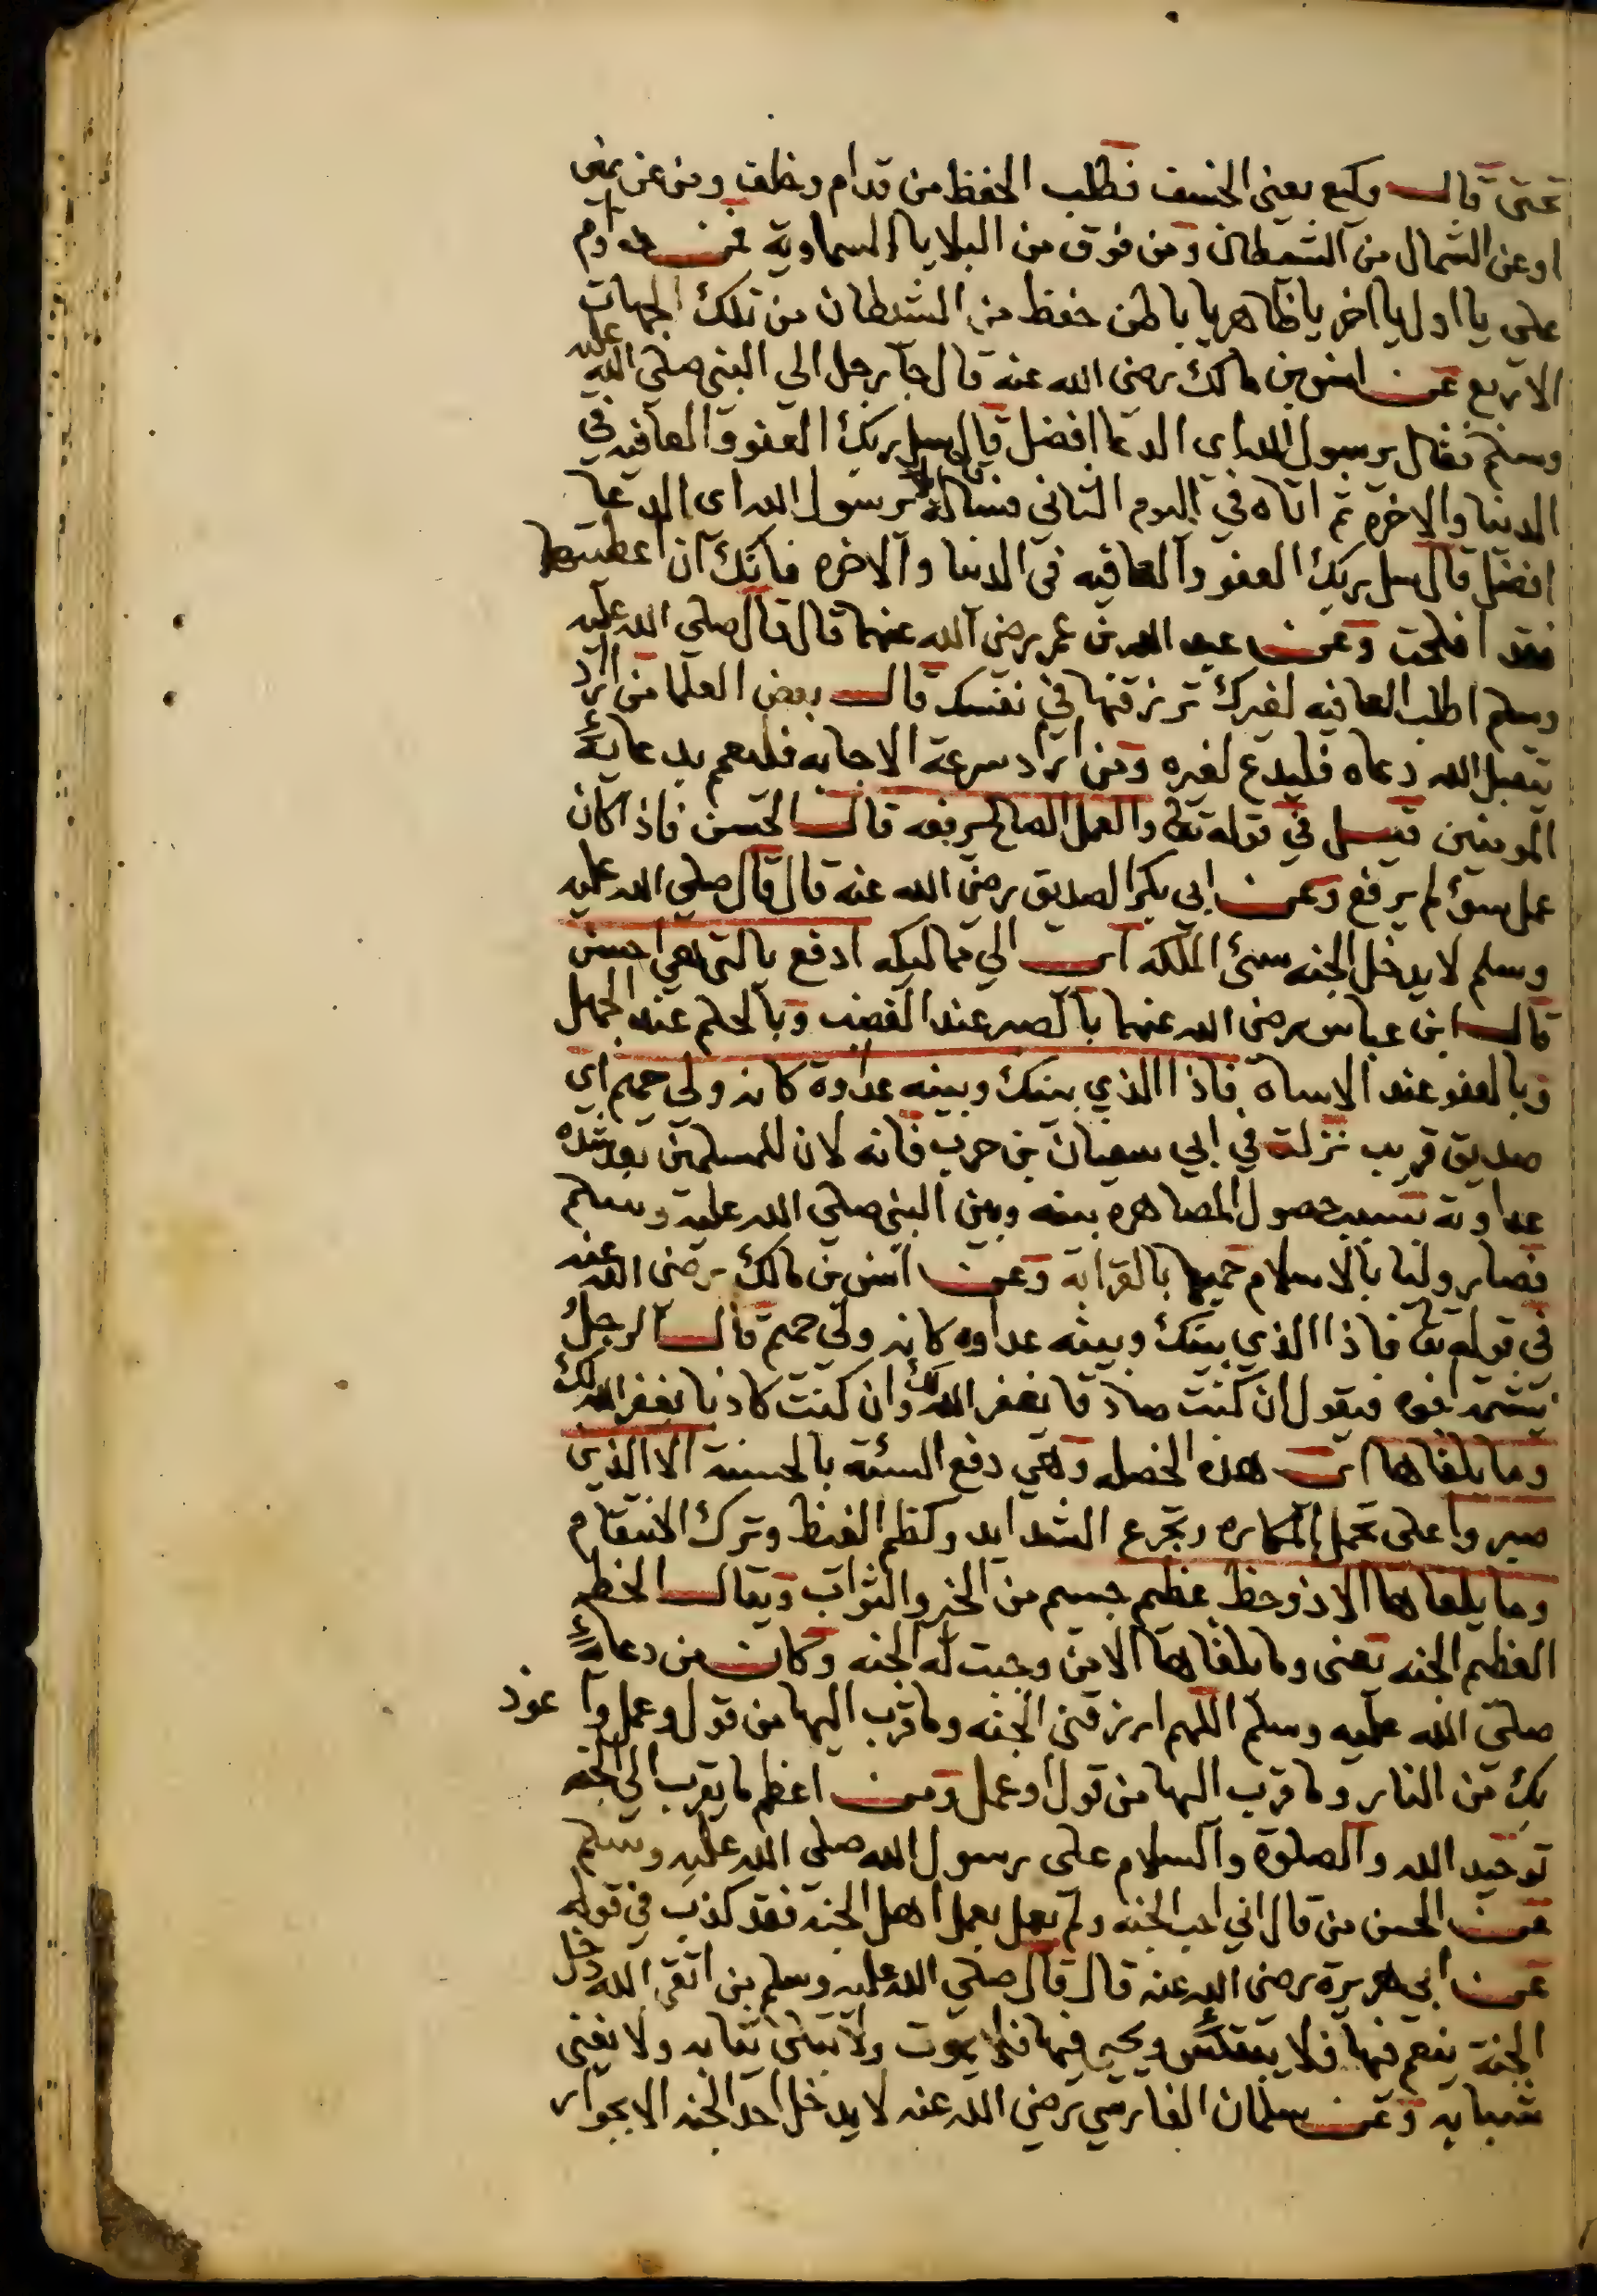 تحتى قال وكيع يعني الخسف فطلب الحفظ من قدام وخلف ومن عن يمين
او عن الشمال من الشيطان ومن فوق من البلايا السماوية فمن داوم
على يا اول يا اخر يا ظاهر يا باطن حفظ من الشيطان من تلك الجهات
الاربع عن انس بن مالك رضى الله عنه قال جا رجل الى النبي صلى الله عليه
وسلم فقال يرسول الله اى الدعا افضل قال سل ربك العفو والعافيه في
الدنيا والاخرة ثم اتاه في اليوم الثاني فساله قال يرسول الله اى الدعا
افضل قال سل ربك العفو والعافيه في الدنيا والاخره فانك ان اعطيتها
فقد افلحت وعن عبد الله بن عمر رضى الله عنهما قال قال صلى الله عليه
وسلم اطلب العافيه لغيرك ترزقها في نفسك قال بعض العلما من اراد
تقبل الله دعاه فليدع لغيره ومن اراد سرعة الاجابه فليعم بدعائه
المومنين قيل في قوله تعا والعمل الصالح يرفعه قال الحسن فاذا كان
عمل سوء لم يرفع وعن ابي بكر الصديق رضى الله عنه قال قال صلى الله عليه
وسلم لا يدخل الجنه سئ الملكه اى الى مماليكه ادفع بالتي هي احسن
قال ابن عباس رضى الله عنهما بالصبر عند الغضب وبالحلم عند الجهل
وبالعفو عند الاساه فاذا الذي بينك وبينه عداوة كانه ولى حميم اى
صديق قريب نزلت في ابي سفيان بن حرب فانه لان للمسلمين بعد شده
عداوته بسبب حصول المصاهره بينه وبين النبي صلى الله عليه وسلم
فصار وليا بالاسلام حميما بالقرابه وعن انس بن مالك رضى الله عنه
في قوله تعا فاذا الذي بينك وبينه عداوه كانه ولى حميم قال الرجل
يشتمه اخوه فيقول ان كنت صادقا يغفر الله لك وان كنت كاذبا يغفر الله لك
وما يلقاها اى هذه الخصله وهي دفع السئة بالحسنة الا الذين
صبروا على تحمل المكاره وتجرع الشدايد وكظم الغيظ وترك الانتقام
وما يلقاها الا ذو حظ عظيم جسيم من الخير والثواب ويقال الحظ
العظيم الجنه يعنى وما يلقاها الا من وجبت له الجنه وكان من دعائه
صلى الله عليه وسلم اللهم ارزقنى الجنه وما قرب اليها من قول وعمل واعوذ
بك من النار وما قرب اليها من قول او عمل ومن اعظم ما يقرب الى الجنه
توحيد الله والصلوة والسلام على رسول الله صلى الله عليه وسلم
عن الحسن من قال اني احب الجنه ولم يعمل بعمل اهل الجنة فقد كذب في قوله
عن ابي هريرة رضى الله عنه قال قال صلى الله عليه وسلم من اتقى الله دخل
الجنة ينعم فيها فلا ويحيى فيها فلا يموت ولا تبلى ثيابه ولا يفنى
شبابه وعن سلمان الفارسي رضي الله عنه لا يدخل احد الجنه الا بجوار